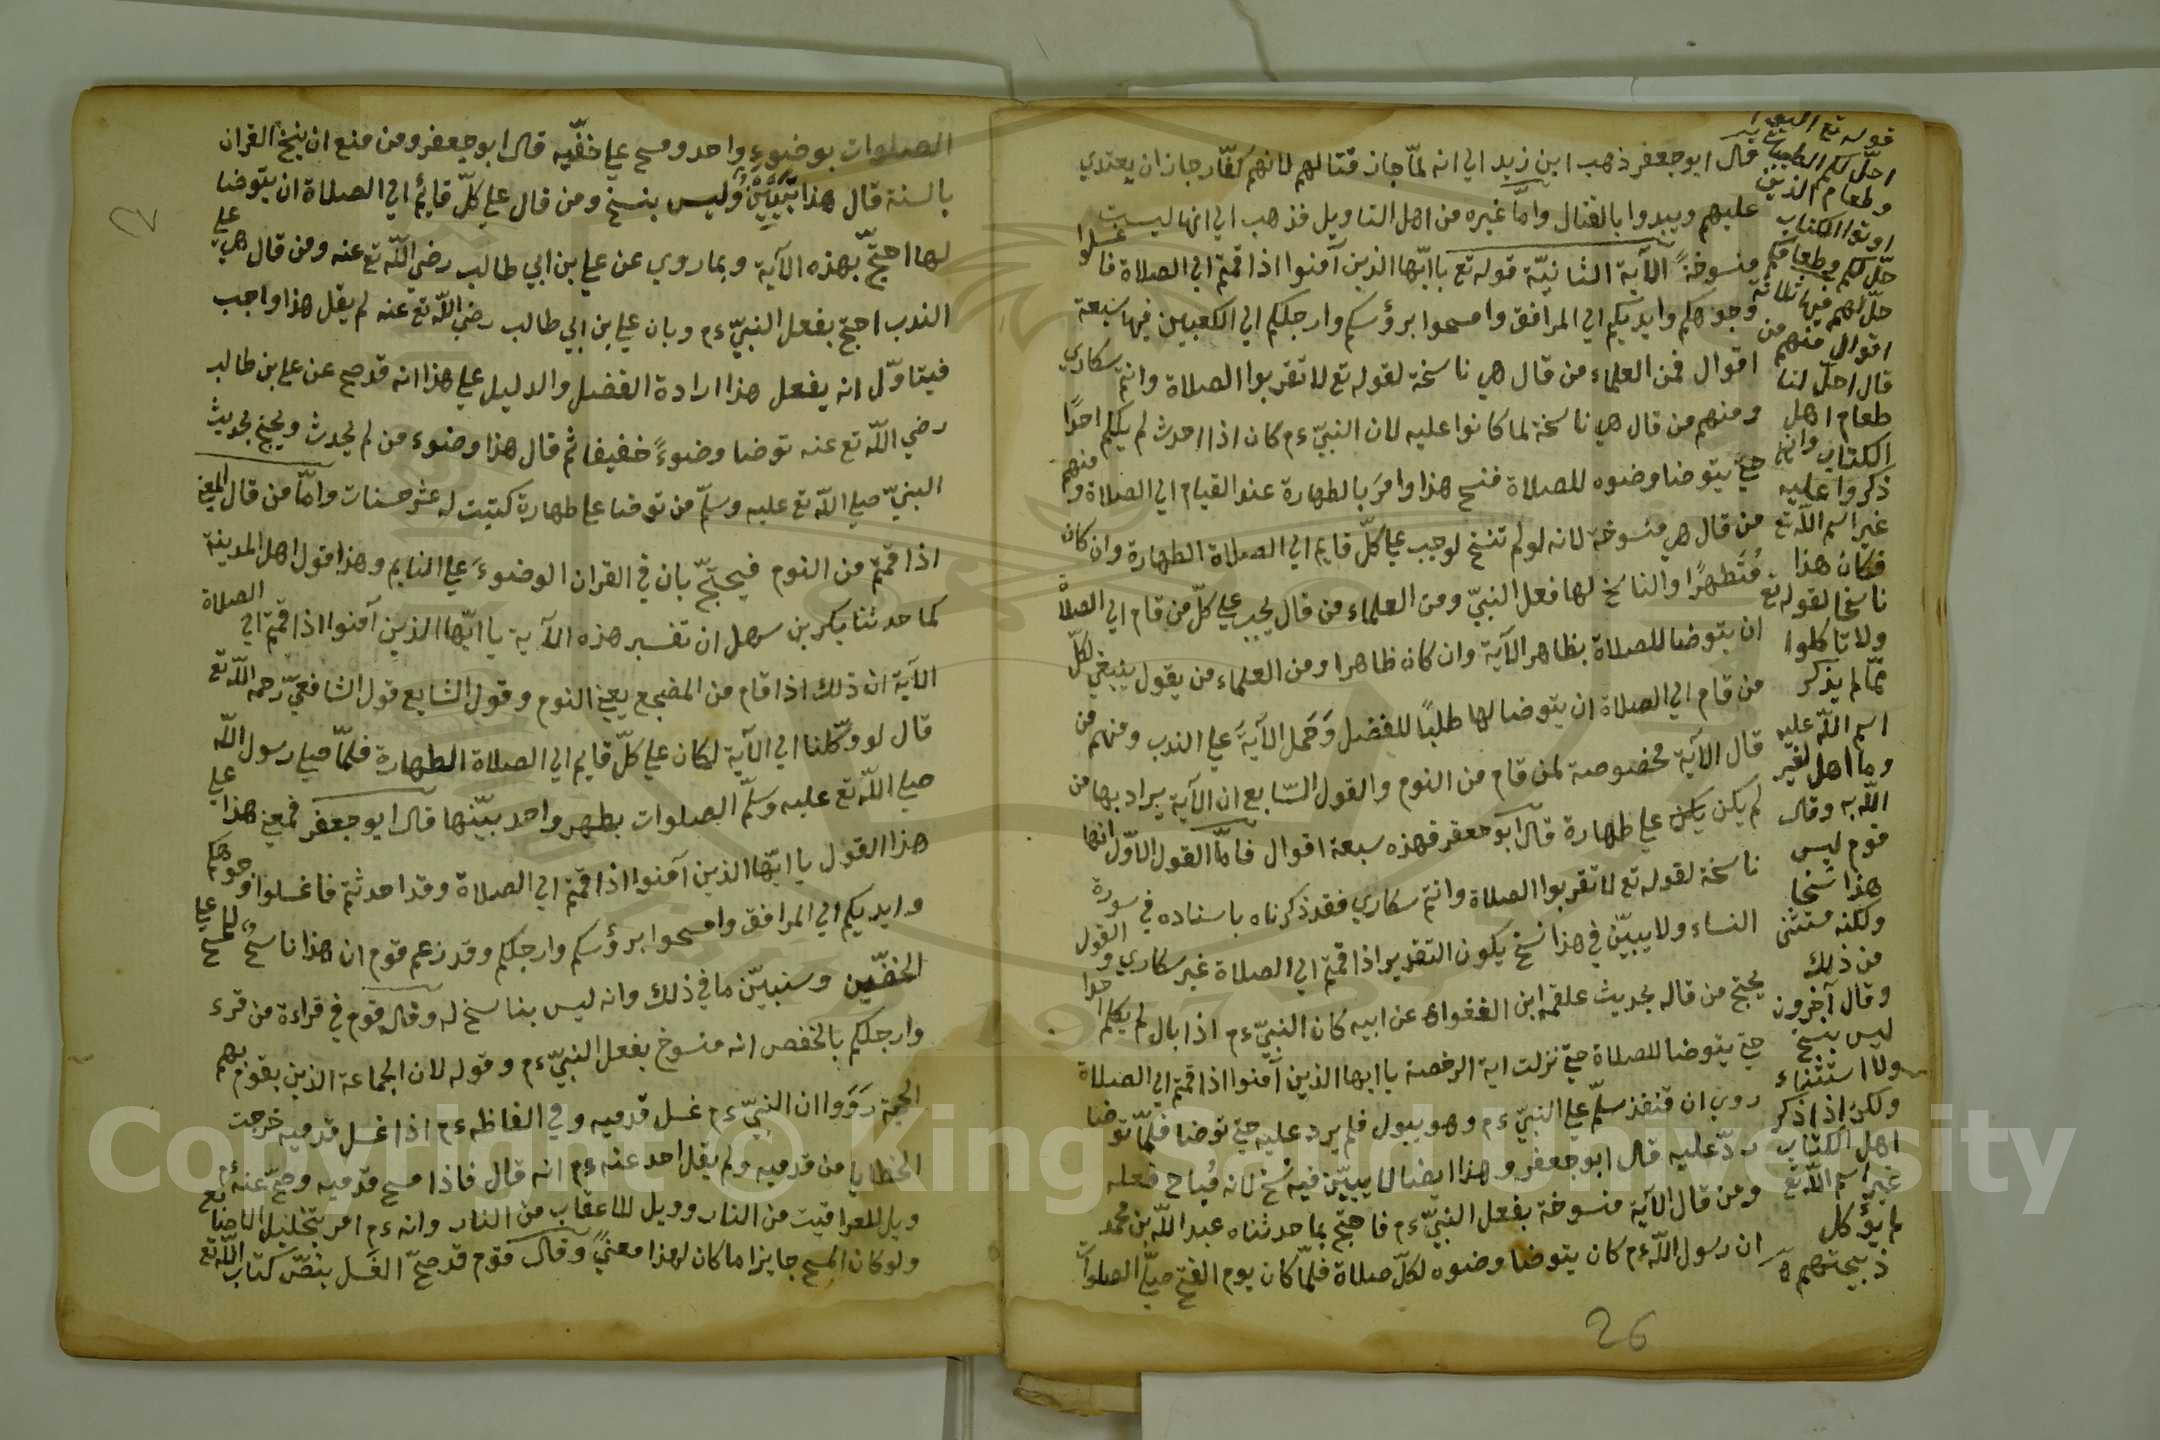 قال ابو جعفر ذهب ابن زيد الي انه لمّا جاز قتالهم لانهم كفّار جاز ان يعتدي
عليهم ويبدوا بالقتال وامّا غيره من اهل التاويل فذهب الي انها ليست
منسوخةً الآية الثانيّة قوله تع يا ايّها الذين آمنوا اذا قمتم الي الصلاة فاغسلوا
وجوهكم وايديكم الي المرافق وامسحوا برؤسكم وارجلكم الي الكعبين فيها سبعة
اقوال فمن العلماء من قال هي ناسخة لقوله تع لا تقربوا الصلاة وانتم سكاري
ومنهم من قال هي ناسخة لما كانوا عليه لان النبيّ ءم كان اذا احدث لم يكلم احدًا
حتي يتوضا وضوه للصلاة فنسح هذا وامرَ بالطهارة عند القيام الي الصلاة ومنهم
من قال هي منسوخة لانه لو لم تنسخ لوجب علي كلّ قايم الي الصلاة الطهارة وان كان
مُتَطهرًا والناسخ لها فعل النبيّ ومن العلماء من قال يجب علي كلّ من قام الي الصلاة
ان يتوضا للصلاة بظاهر الآية وان كان ظاهرا ومن العلماء من يقول ينبغي لكلّ
من قام الي الصلاة ان يتوضا لها طلبًا للفضل وَحَمل الآيةَ علي الندب ومنهم من
قال الآية مخصوصة لمن قام من النوم والقول السّابع ان الآية يراد بها من
لم يكن يكن علي طهارة قال ابو جعفر فهذه سبعة اقوال فامّا القول الاوّل انها
ناسخة لقوله تع لا تقربوا الصلاة وانتم سكاري فقد ذكرناه باسناده في سورة
النساء ولا يبيّن في هذا نسخ يكون التقدير اذا قمتم الي الصلاة غير سكاري والقول
يحتج من قاله بحديث علقمه ابن الفغواء عن ابيه كان النبيّ ءم اذا بال لم يكلم احدا
حتي يتوضا للصلاة حتي نزلت اية الرخصة يا ايها الذين آمنوا اذا قمتم الي الصلاة
روي ان قنفذ سلّم علي النبيّ ءم وهو يبول فلم يرد عليه حتي توضا فلمّا توضا
ردّ عليه قال ابو جعفر وهذا ايضا لا يبيّن فيه نُسخ لانه مُباح فعله
ومن قال الآية منسوخة بفعل النبيّ ءم فاحتج بما حدثناه عبد اللّه بن محمد
ان رسول اللّه ءم كان يتوضا وضوه لكلّ صلاة فلمّا كان يوم الفتح صلّي الصلوات
احلّ لكم الطيبات
وطعام الذين
اوتوا الكتاب
حلّ لكم وطعامكم
حلّ لهم فيها ثلاثة
اقوال فمنهم من
قال احلّ لنا
طعام اهل
الكتاب وان
ذكروا عليه
غير اسم اللّه تع
فكان هذا
ناسخا لقوله تع
ولا تاكلوا
ممّا لم يذكر
اسم اللّه عليه
وما اهل لغير
اللّه به وقال
قوم ليس
هذا نسخا
ولكنه مستثني
من ذلك
وقال آخرون
ليس بنسخ
ولا استثناء
ولكن اذا ذكر
اهل الكتاب
غير اسم اللّه تع
لم يؤكل
ذبيحتهم
26
الصلوات بوضوءٍ واحد ومسح علي خفّيه قال ابو جعفر ومن منع ان ينسخ القران
بالسنة قال هذا تَبيينٌ وليس بنسخ ومن قال علي كلّ قايمٍ الي الصلاة ان يتوضا
لها احتجّ بهذه الآية وبما روي عن علي بن ابي طالب رضي اللّه تع عنه ومن قال هي علي
الندب احتج بفعل النبيّ ءم وبان علي بن ابي طالب رضي اللّه تع عنه لم يقل هذا واجب
فيتاوّل انه يفعل هذا ارادة الفضل والدليل علي هذا انه قد صح عن علي بن طالب
رضي اللّه تع عنه توضا وضوءً خفيفا ثم قال هذا وضوء من لم يحدث ويحتج بحديث
النبيّ صلي اللّه تع عليه وسلّم من توضا علي طهارة كتبت له عشر حسنات وامّا من قال المعني
اذا قمتم من النوم فيحتجّ بان في القران الوضوءَ علي النايم وهذا قول اهل المدينة
كما حدثنا بكر بن سهل ان تفسير هذه الآية يا ايّها الذين آمنوا اذا قمتم الي الصلاة
الآية ان ذلك اذا قام من المضجع يعني النوم وقول الشايع قول الشافعيّ رحمه اللّه تع
قال لو وكّلنا الي الآية لكان علي كلّ قايم الي الصلاة الطهارة فلمّا صلي رسول اللّه
صلي اللّه تع عليه وسلّم الصلوات بطهر واحد بيّنها قال ابو جعفر فمعني هذا علي
هذا القول يا ايّها الذين آمنوا اذا قمتم الي الصلاة وقد احدثتم فاغسلوا وجوهكم
وايديكم الي المرافق وامسحوا برؤسكم وارجلكم وقد زعم قوم ان هذا ناسخٌ للمسح علي
الخفّين وسنبيّن ما في ذلك وانه ليس بناسخ له وقال قوم في قراءة من قرء
وارجلكم بالخفض انه منسوخ بفعل النبيّ ءم وقوله لان الجماعة الذين يقوم بهم
الحجة رَوَوا ان النبيّ ءم غسل قدميه وفي الفاظه ءم اذا غسل قدميه خرجت
الخطايا من قدميه ولم يقل احد عنه ءم انه قال فاذا مسح قدميه وصحّ عنه ءم
ويل للعراقيب من النار وويل للاعقاب من النار وانه ءم امر بتخليل الاصابع
ولو كان المسح جايزا ما كان لهذا معنيً وقال قوم قد صحّ الغَسل بنصّ كتاب اللّه تع
Copyright © King Saud University